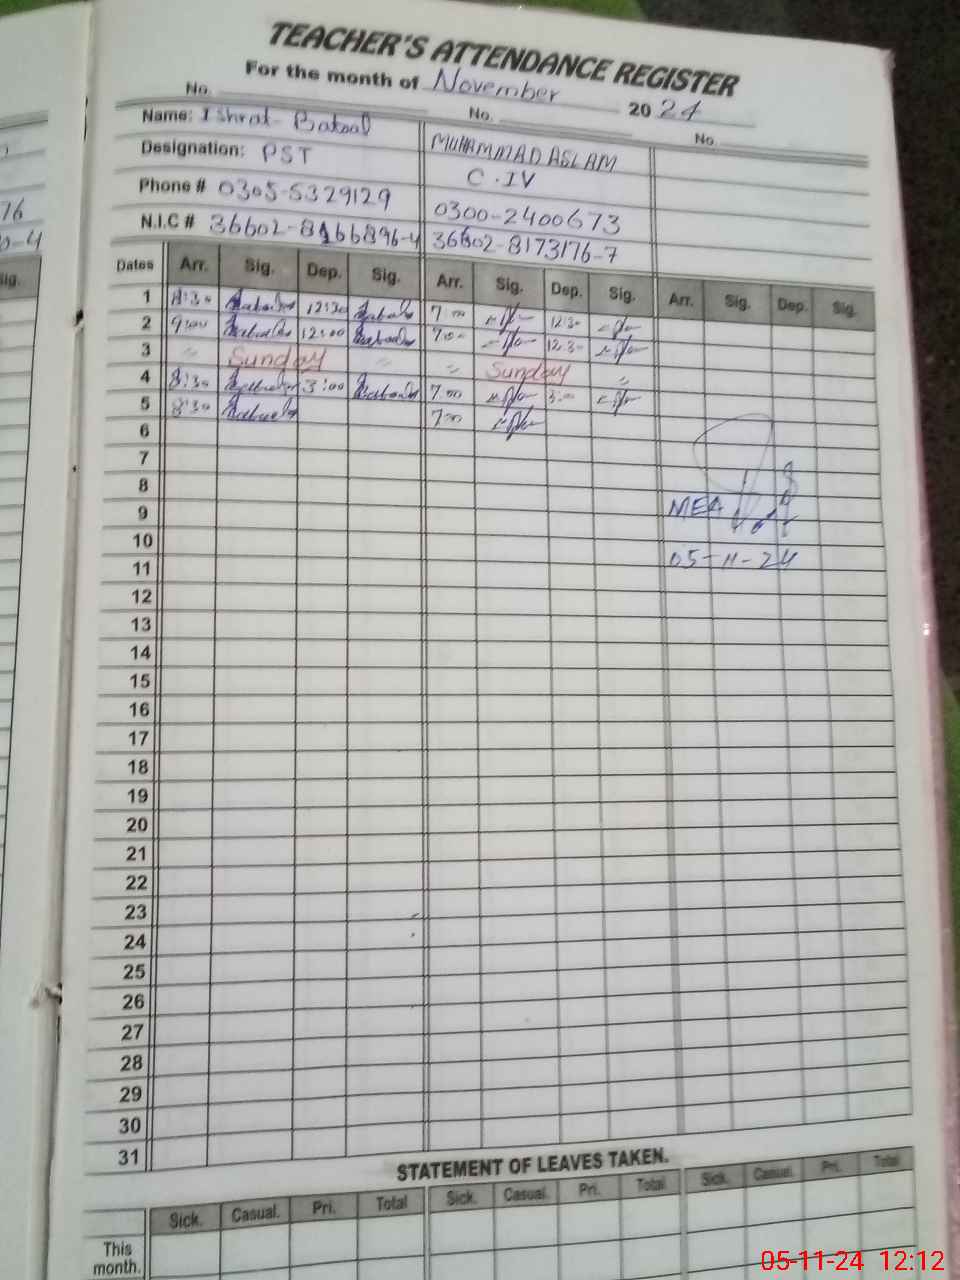 TEACHER'S ATTENDANCE REGISTER
For the month of November 2024
No. No. No.
Name: Ishrat Batool MUHAMMAD ASLAM
Designation: PST C.IV
Phone # 0305-5329129 0300-2400673
N.I.C # 36602-8166896-4 36602-8173176-7
Dates Arr. Sig. Dep. Sig. Arr. Sig. Dep. Sig. Arr. Sig. Dep. Sig.
1 8:30 12:30 7:00 12:30
2 9:00 12:00 7:00 12:30
3 Sunday Sunday
4 8:30 3:00 7:00 3:00
5 8:30 7:00
6
7
8
9 MEA
10
11 05-11-24
12
13
14
15
16
17
18
19
20
21
22
23
24
25
26
27
28
29
30
31
STATEMENT OF LEAVES TAKEN.
Sick. Casual. Pri. Total Sick. Casual. Pri. Total Sick. Casual. Pri. Total
This month.
76
0-4
Sig.
05-11-24 12:12